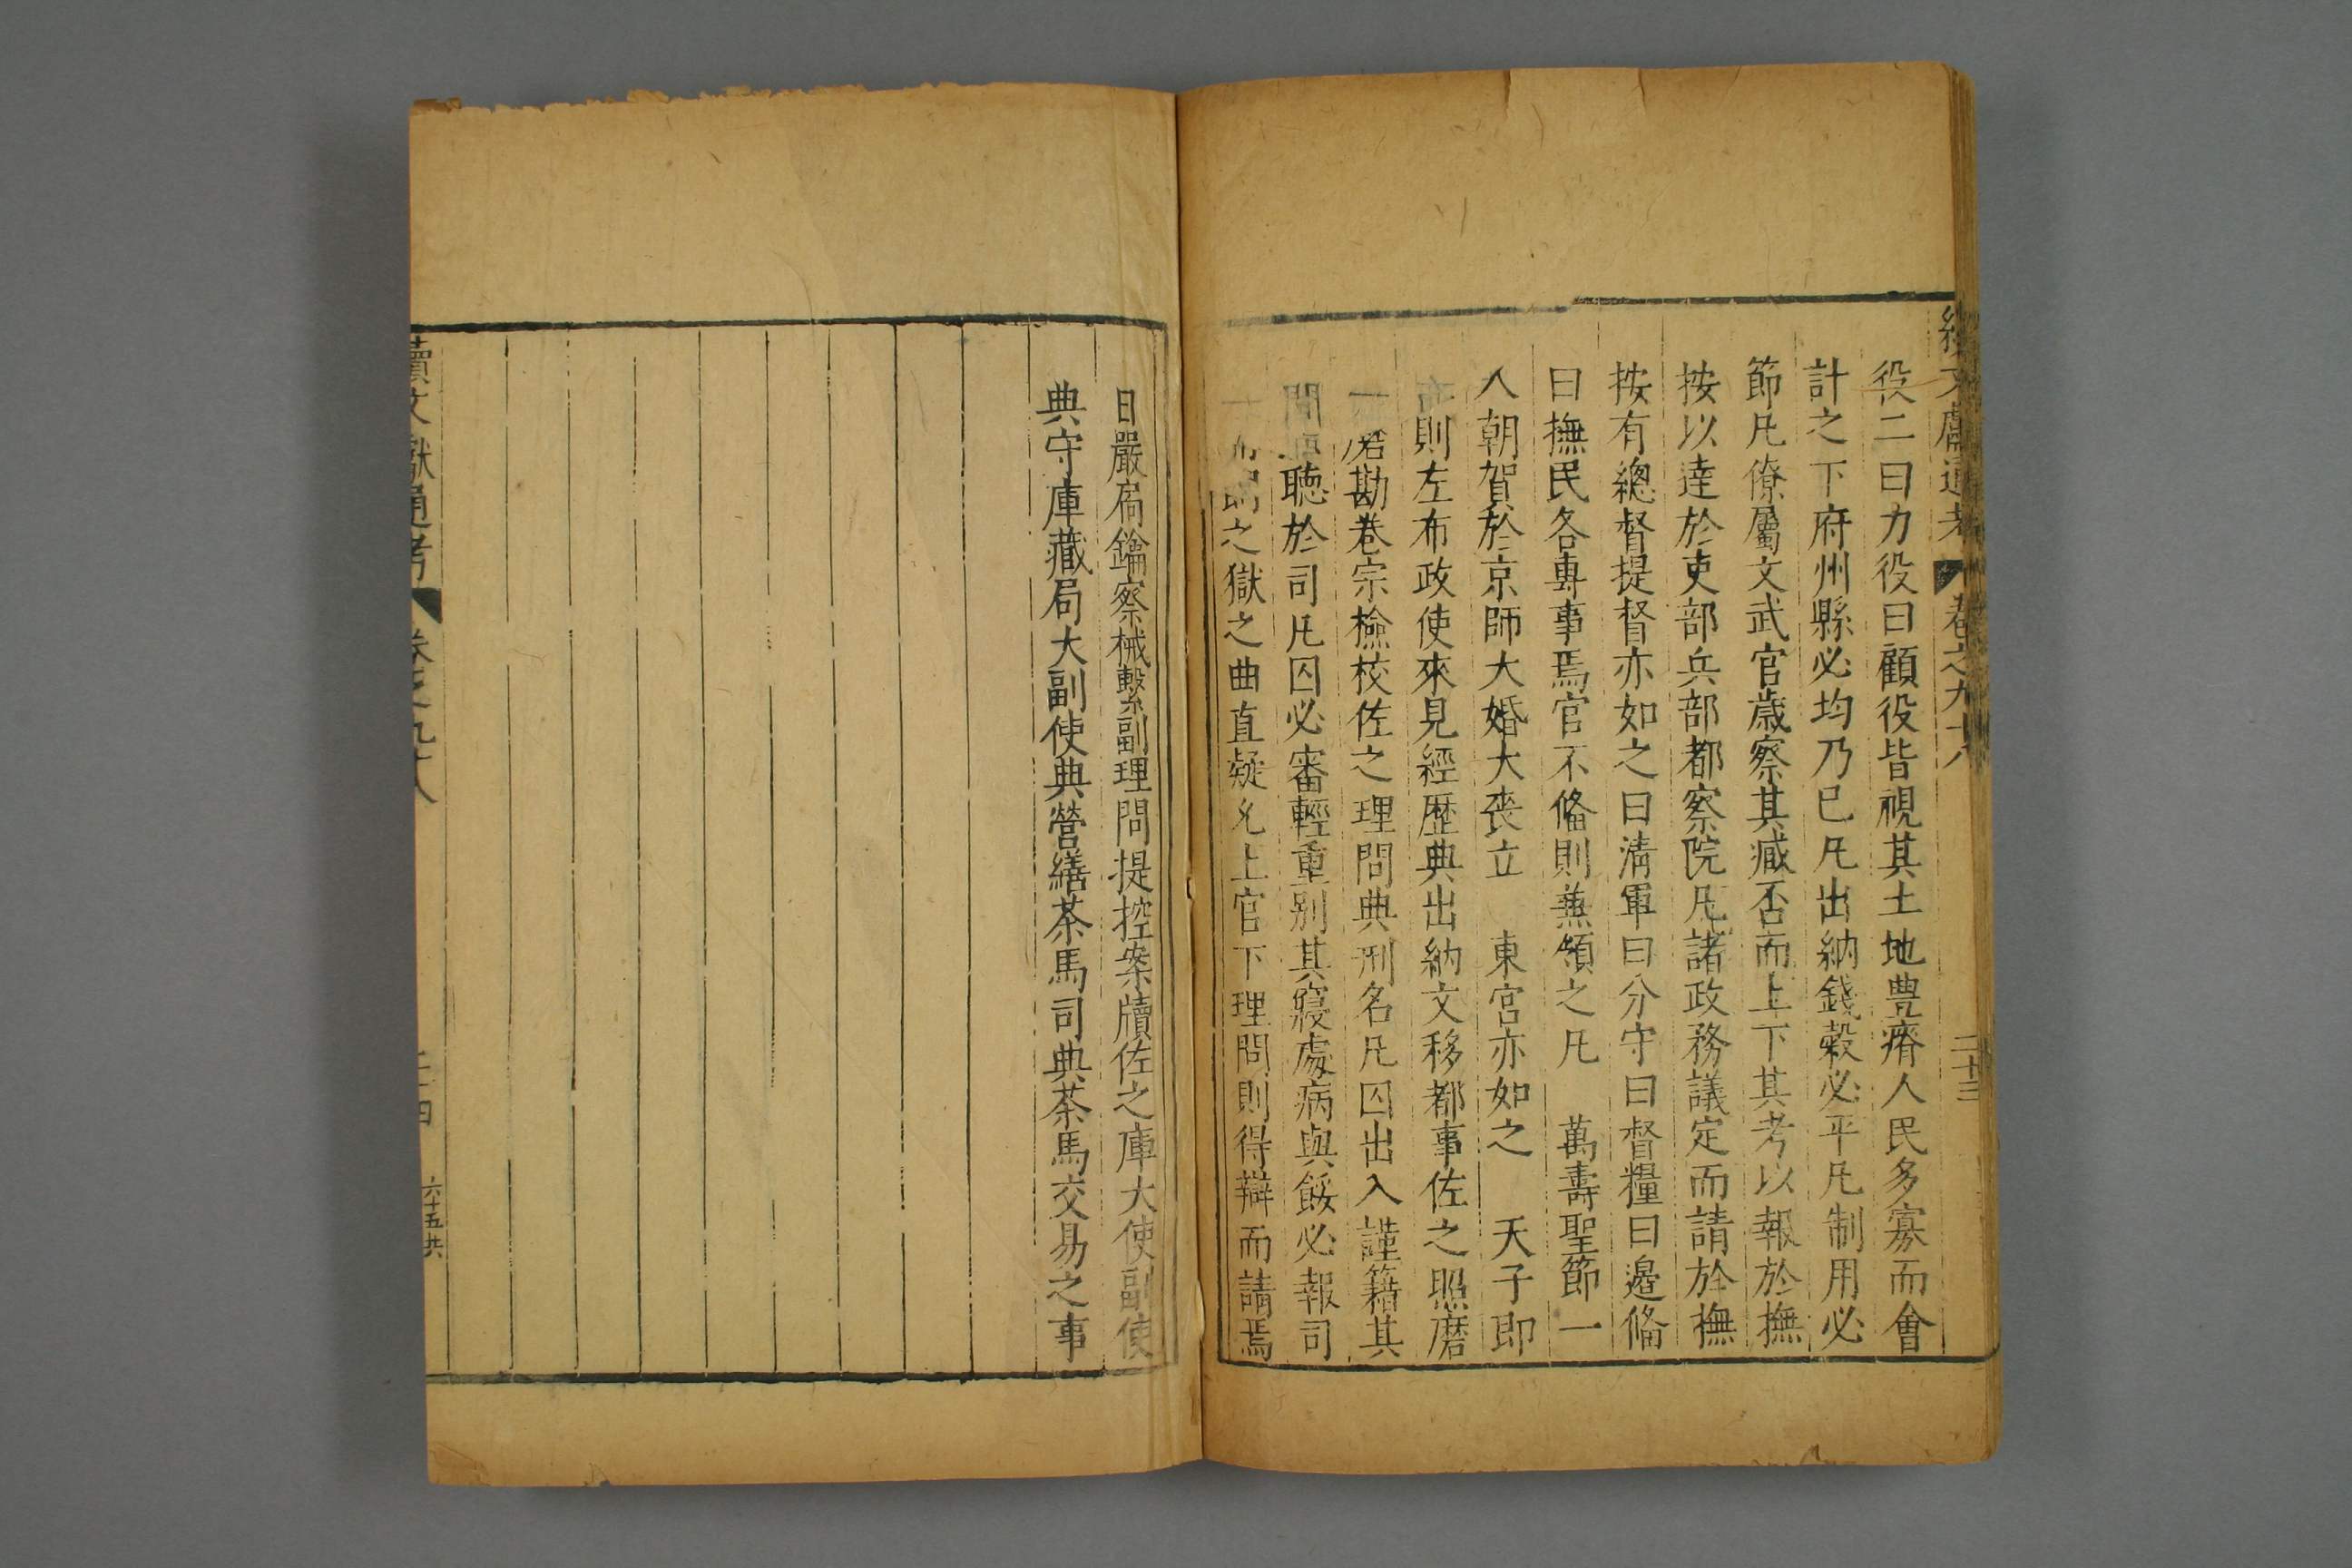 續文獻通考 卷之九十八 二十三
役二曰力役曰顧役皆視其土地豊瘠人民多寡而會
計之下府州縣必均乃已凡出納錢穀必平凡制用必
節凡僚屬文武官歲察其臧否而上下其考以報於撫
按以達於吏部兵部都察院凡諸政務議定而請於撫
按有總督提督亦如之曰清軍曰分守曰督糧曰邉俻
曰撫民各專事焉官不俻則兼領之凡 萬壽聖節一
人朝賀於京師大婚大喪立 東宮亦如之 天子即
則左布政使來見經歷典出納文移都事佐之照磨
勘卷宗檢校佐之理問典刑名凡囚出入謹籍其
聽於司凡囚必審輕重別其寢處病與餒必報司
之獄之曲直疑允上官下理問則得辯而請焉
日嚴扄鑰察械繫副理問提控案牘佐之庫大使副使
典守庫藏局大副使典營繕茶馬司典茶馬交易之事
續文獻通考 卷之九十八 二十四 六十五共